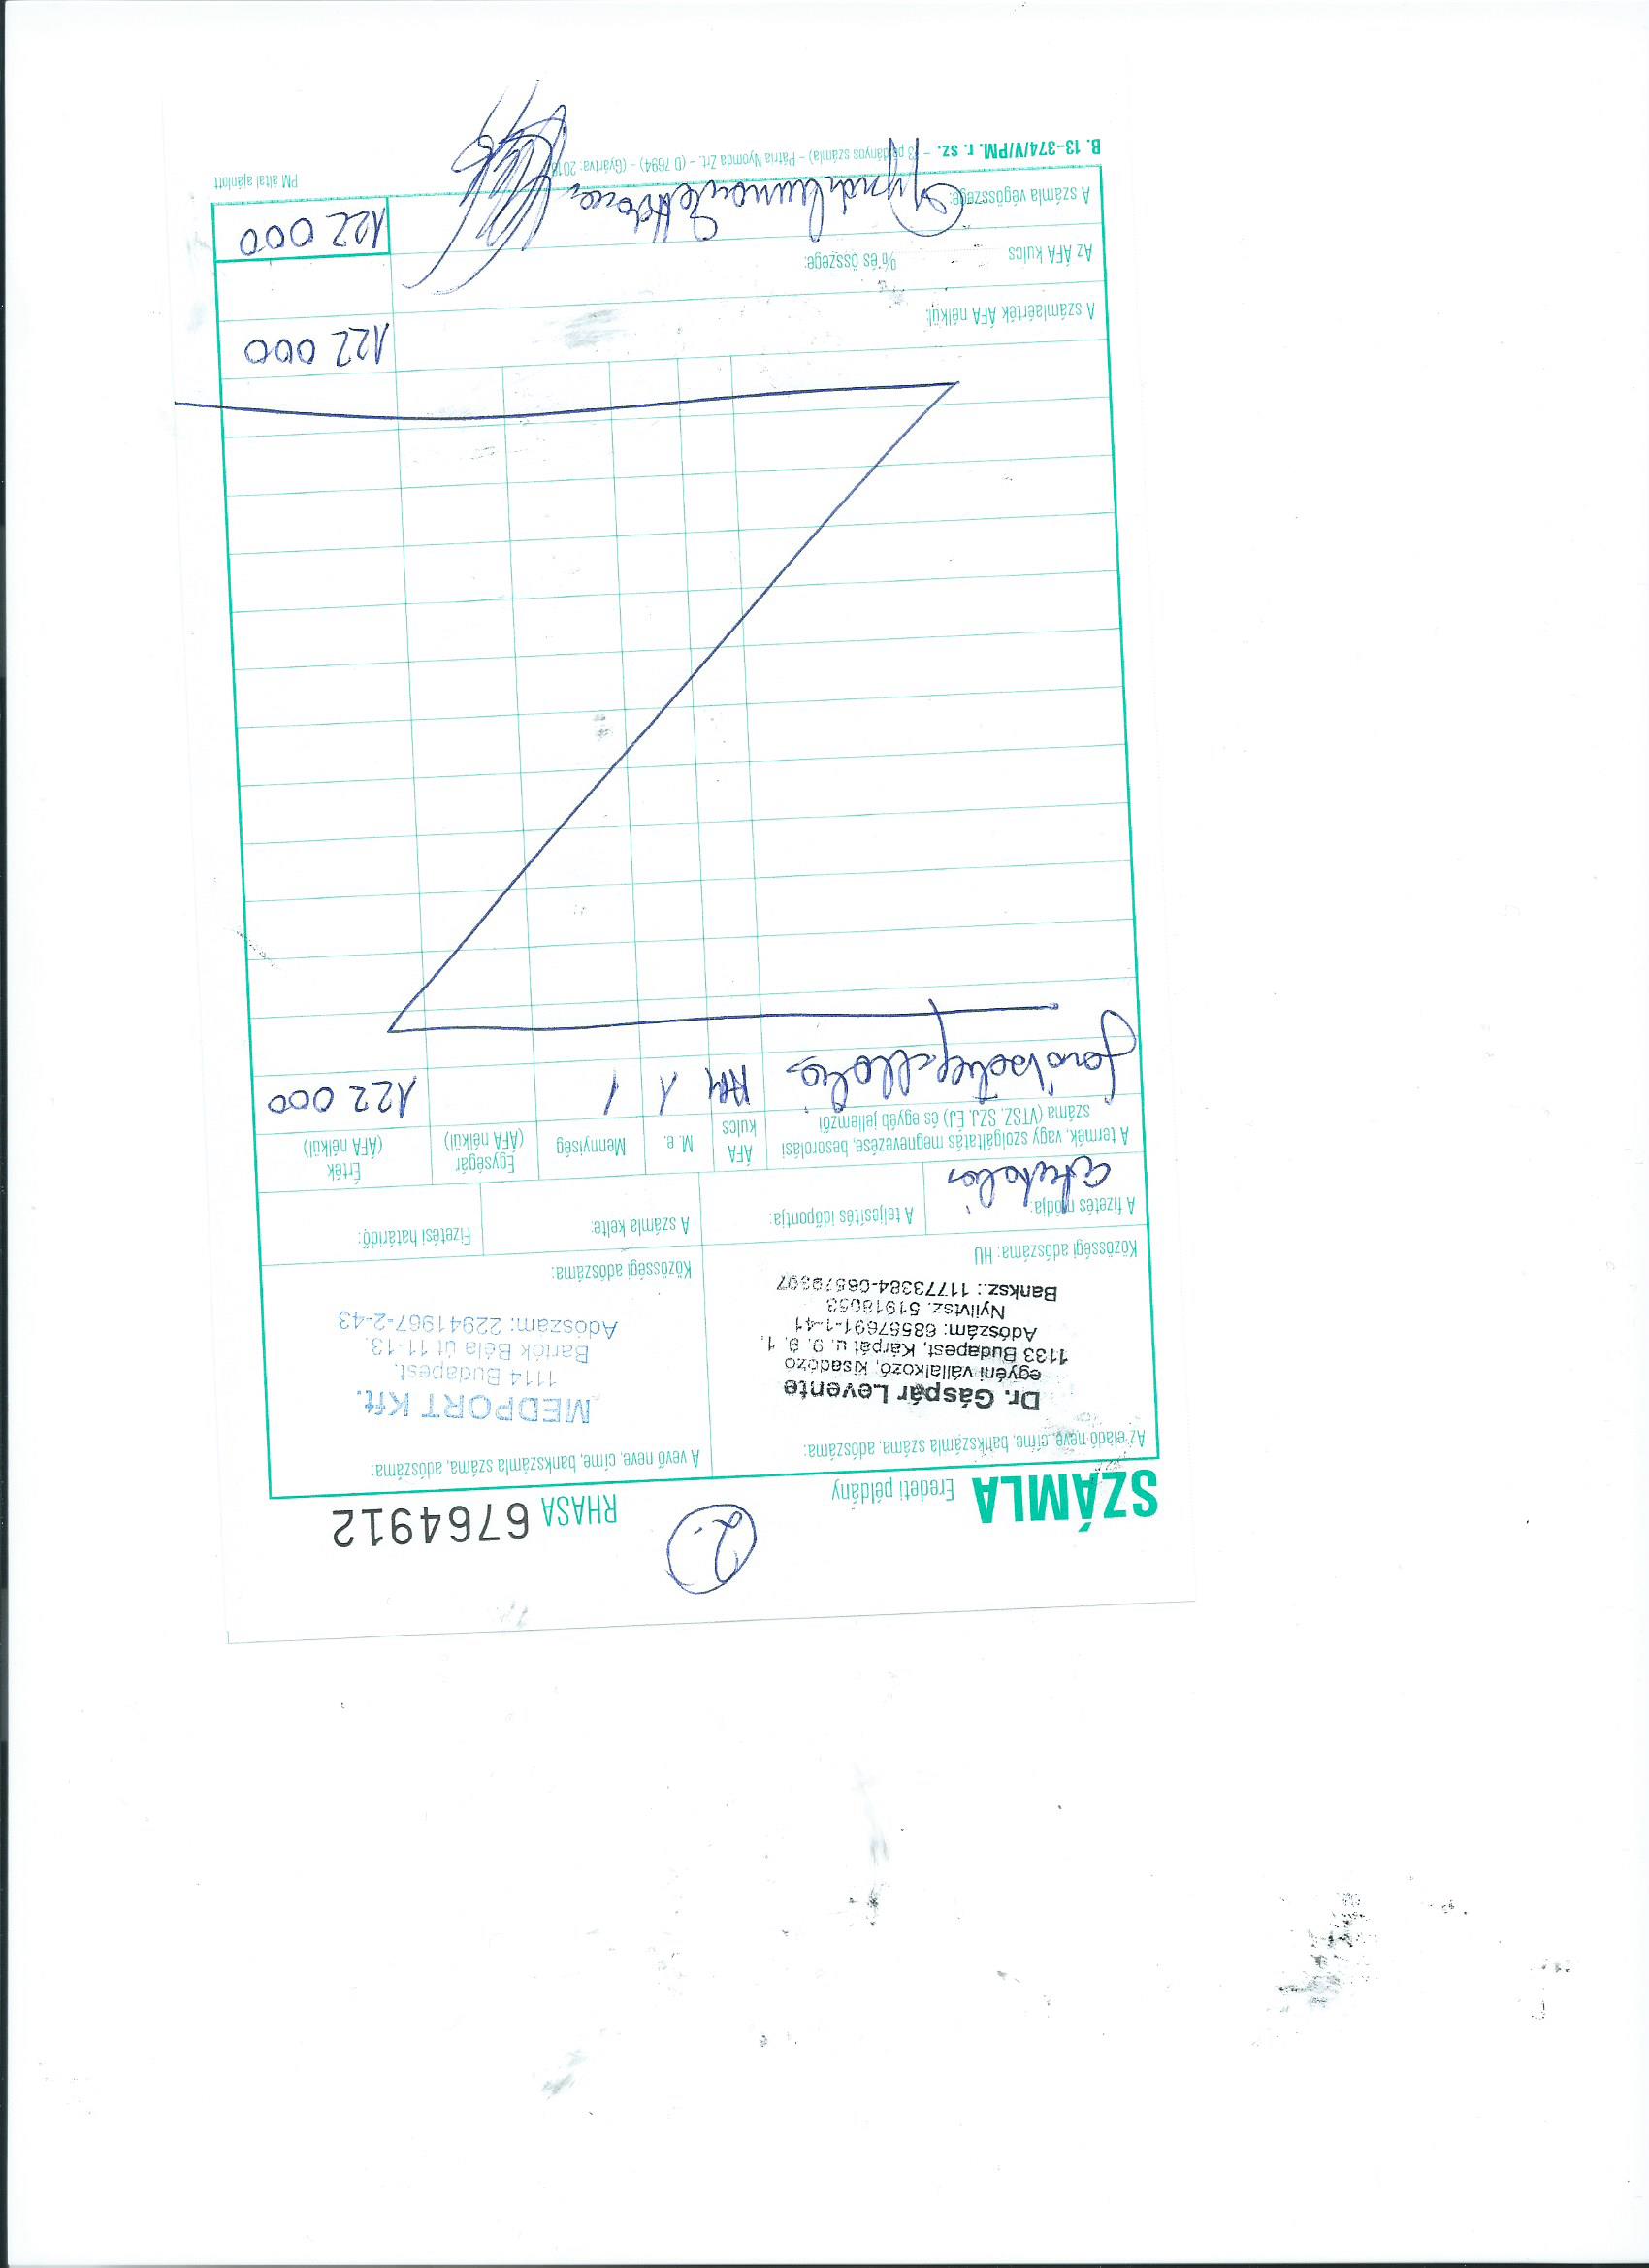 2.
SZÁMLA Eredeti példány RHASA 6764912
Az eladó neve, címe, bankszámla száma, adószáma:
Dr. Gáspár Levente
egyéni vállalkozó, kisadózó
1133 Budapest, Kárpát u. 9. 9. 1.
Adószám: 68567691-1-41
Nyilvtsz. 51918053
Banksz.: 11773384-06579307
Közösségi adószáma: HU
A vevő neve, címe, bankszámla száma, adószáma:
MEDPORT Kft.
1114 Budapest,
Bartók Béla út 11-13.
Adószám: 22941967-2-43
Közösségi adószáma:
A fizetés módja:
átutalás
A teljesítés időpontja:
A számla kelte:
Fizetési határidő:
A termék, vagy szolgáltatás megnevezése, besorolási
száma (VTSZ, SZJ, EJ) és egyéb jellemzői
ÁFA
kulcs
M. e.
Mennyiség
Egységár
(ÁFA nélkül)
Érték
(ÁFA nélkül)
járóbetegellátás 1 1 122 000
A számlaérték ÁFA nélkül: 122 000
Az ÁFA kulcs % és összege:
A számla végösszege: 122 000
B. 13-374/V/PM. r. sz. – példányos számla) – Pátria Nyomda Zrt. – (D 7694) – (Gyártva:
PM által ajánlott